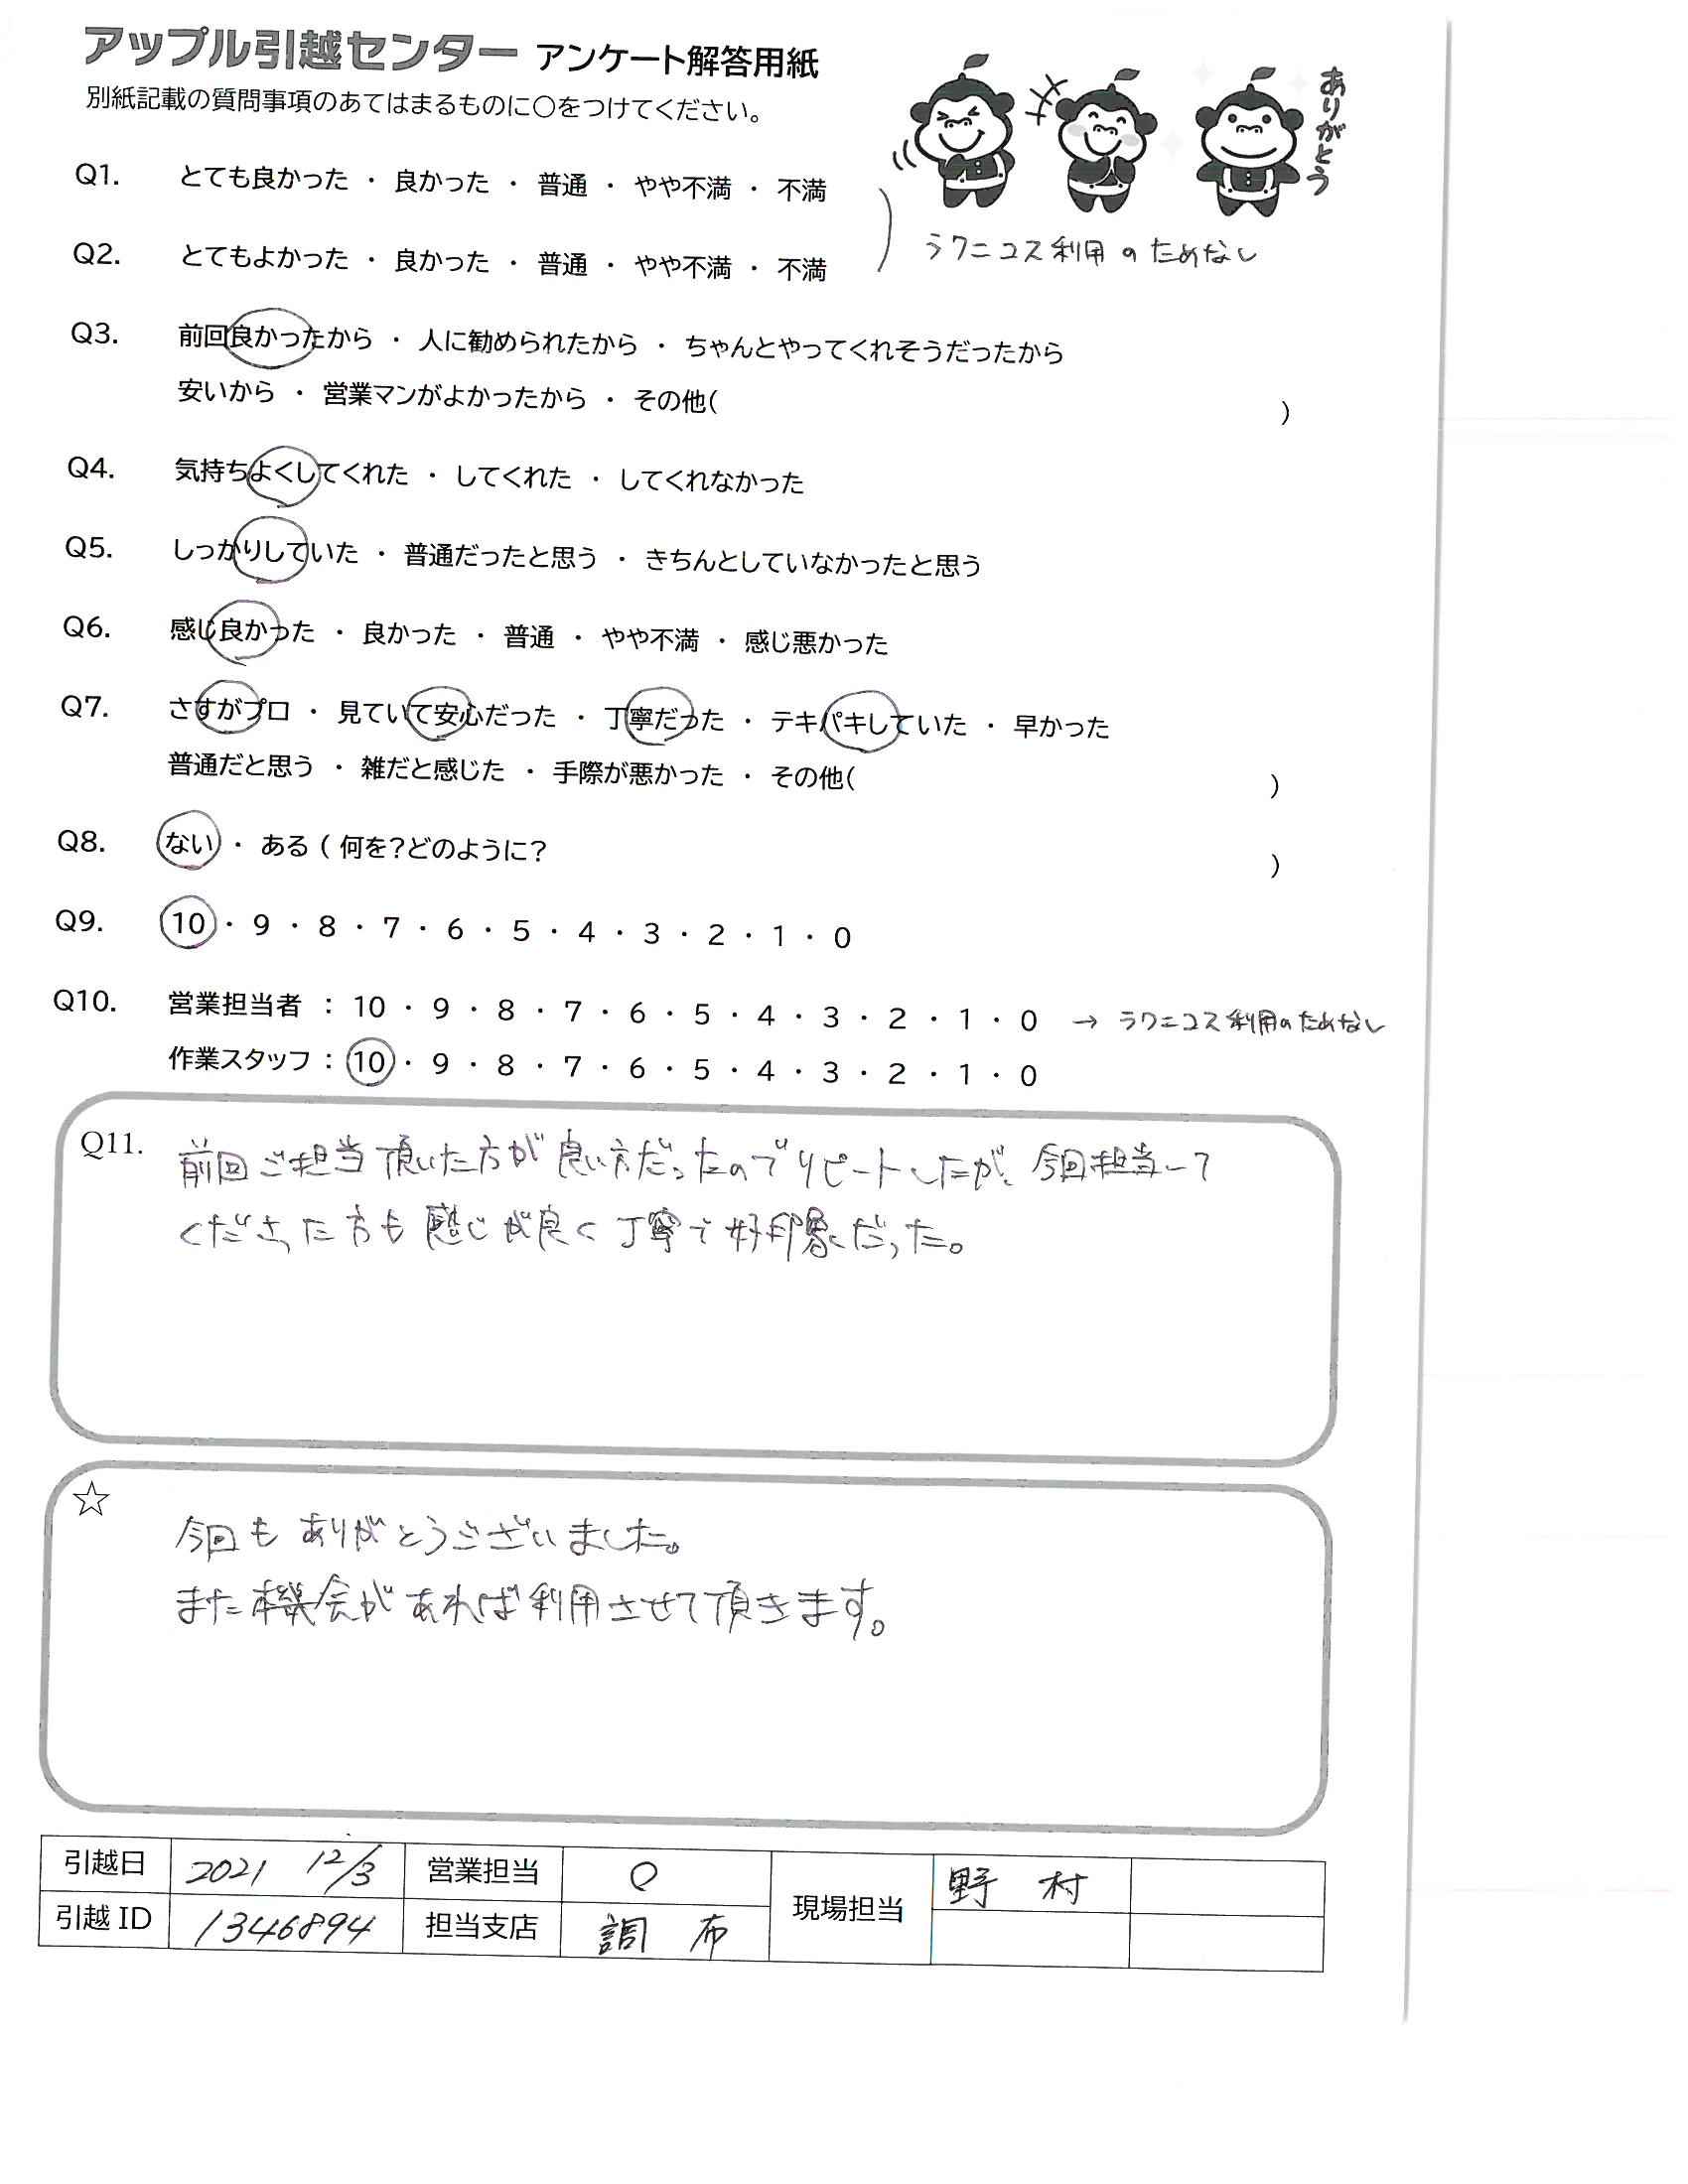 アップル引越センター アンケート解答用紙
別紙記載の質問事項のあてはまるものに〇をつけてください。
ありがとう
Q1. とても良かった ・ 良かった ・ 普通 ・ やや不満 ・ 不満
Q2. とてもよかった ・ 良かった ・ 普通 ・ やや不満 ・ 不満
ラクニコス利用のためなし
Q3. 前回良かったから ・ 人に勧められたから ・ ちゃんとやってくれそうだったから
安いから ・ 営業マンがよかったから ・ その他( )
Q4. 気持ちよくしてくれた ・ してくれた ・ してくれなかった
Q5. しっかりしていた ・ 普通だったと思う ・ きちんとしていなかったと思う
Q6. 感じ良かった ・ 良かった ・ 普通 ・ やや不満 ・ 感じ悪かった
Q7. さすがプロ ・ 見ていて安心だった ・ 丁寧だった ・ テキパキしていた ・ 早かった
普通だと思う ・ 雑だと感じた ・ 手際が悪かった ・ その他( )
Q8. ない ・ ある ( 何を?どのように? )
Q9. 10 ・ 9 ・ 8 ・ 7 ・ 6 ・ 5 ・ 4 ・ 3 ・ 2 ・ 1 ・ 0
Q10. 営業担当者 : 10 ・ 9 ・ 8 ・ 7 ・ 6 ・ 5 ・ 4 ・ 3 ・ 2 ・ 1 ・ 0 → ラクニコス利用のためなし
作業スタッフ : 10 ・ 9 ・ 8 ・ 7 ・ 6 ・ 5 ・ 4 ・ 3 ・ 2 ・ 1 ・ 0
Q11. 前回ご担当頂いた方が良い方だったのでリピートしたが、今回担当して
くださった方も感じが良く丁寧で好印象だった。
☆
今回もありがとうございました。
また機会があれば利用させて頂きます。
引越日 2021 12/3 営業担当 Q 現場担当 野村
引越ID 1346894 担当支店 調布